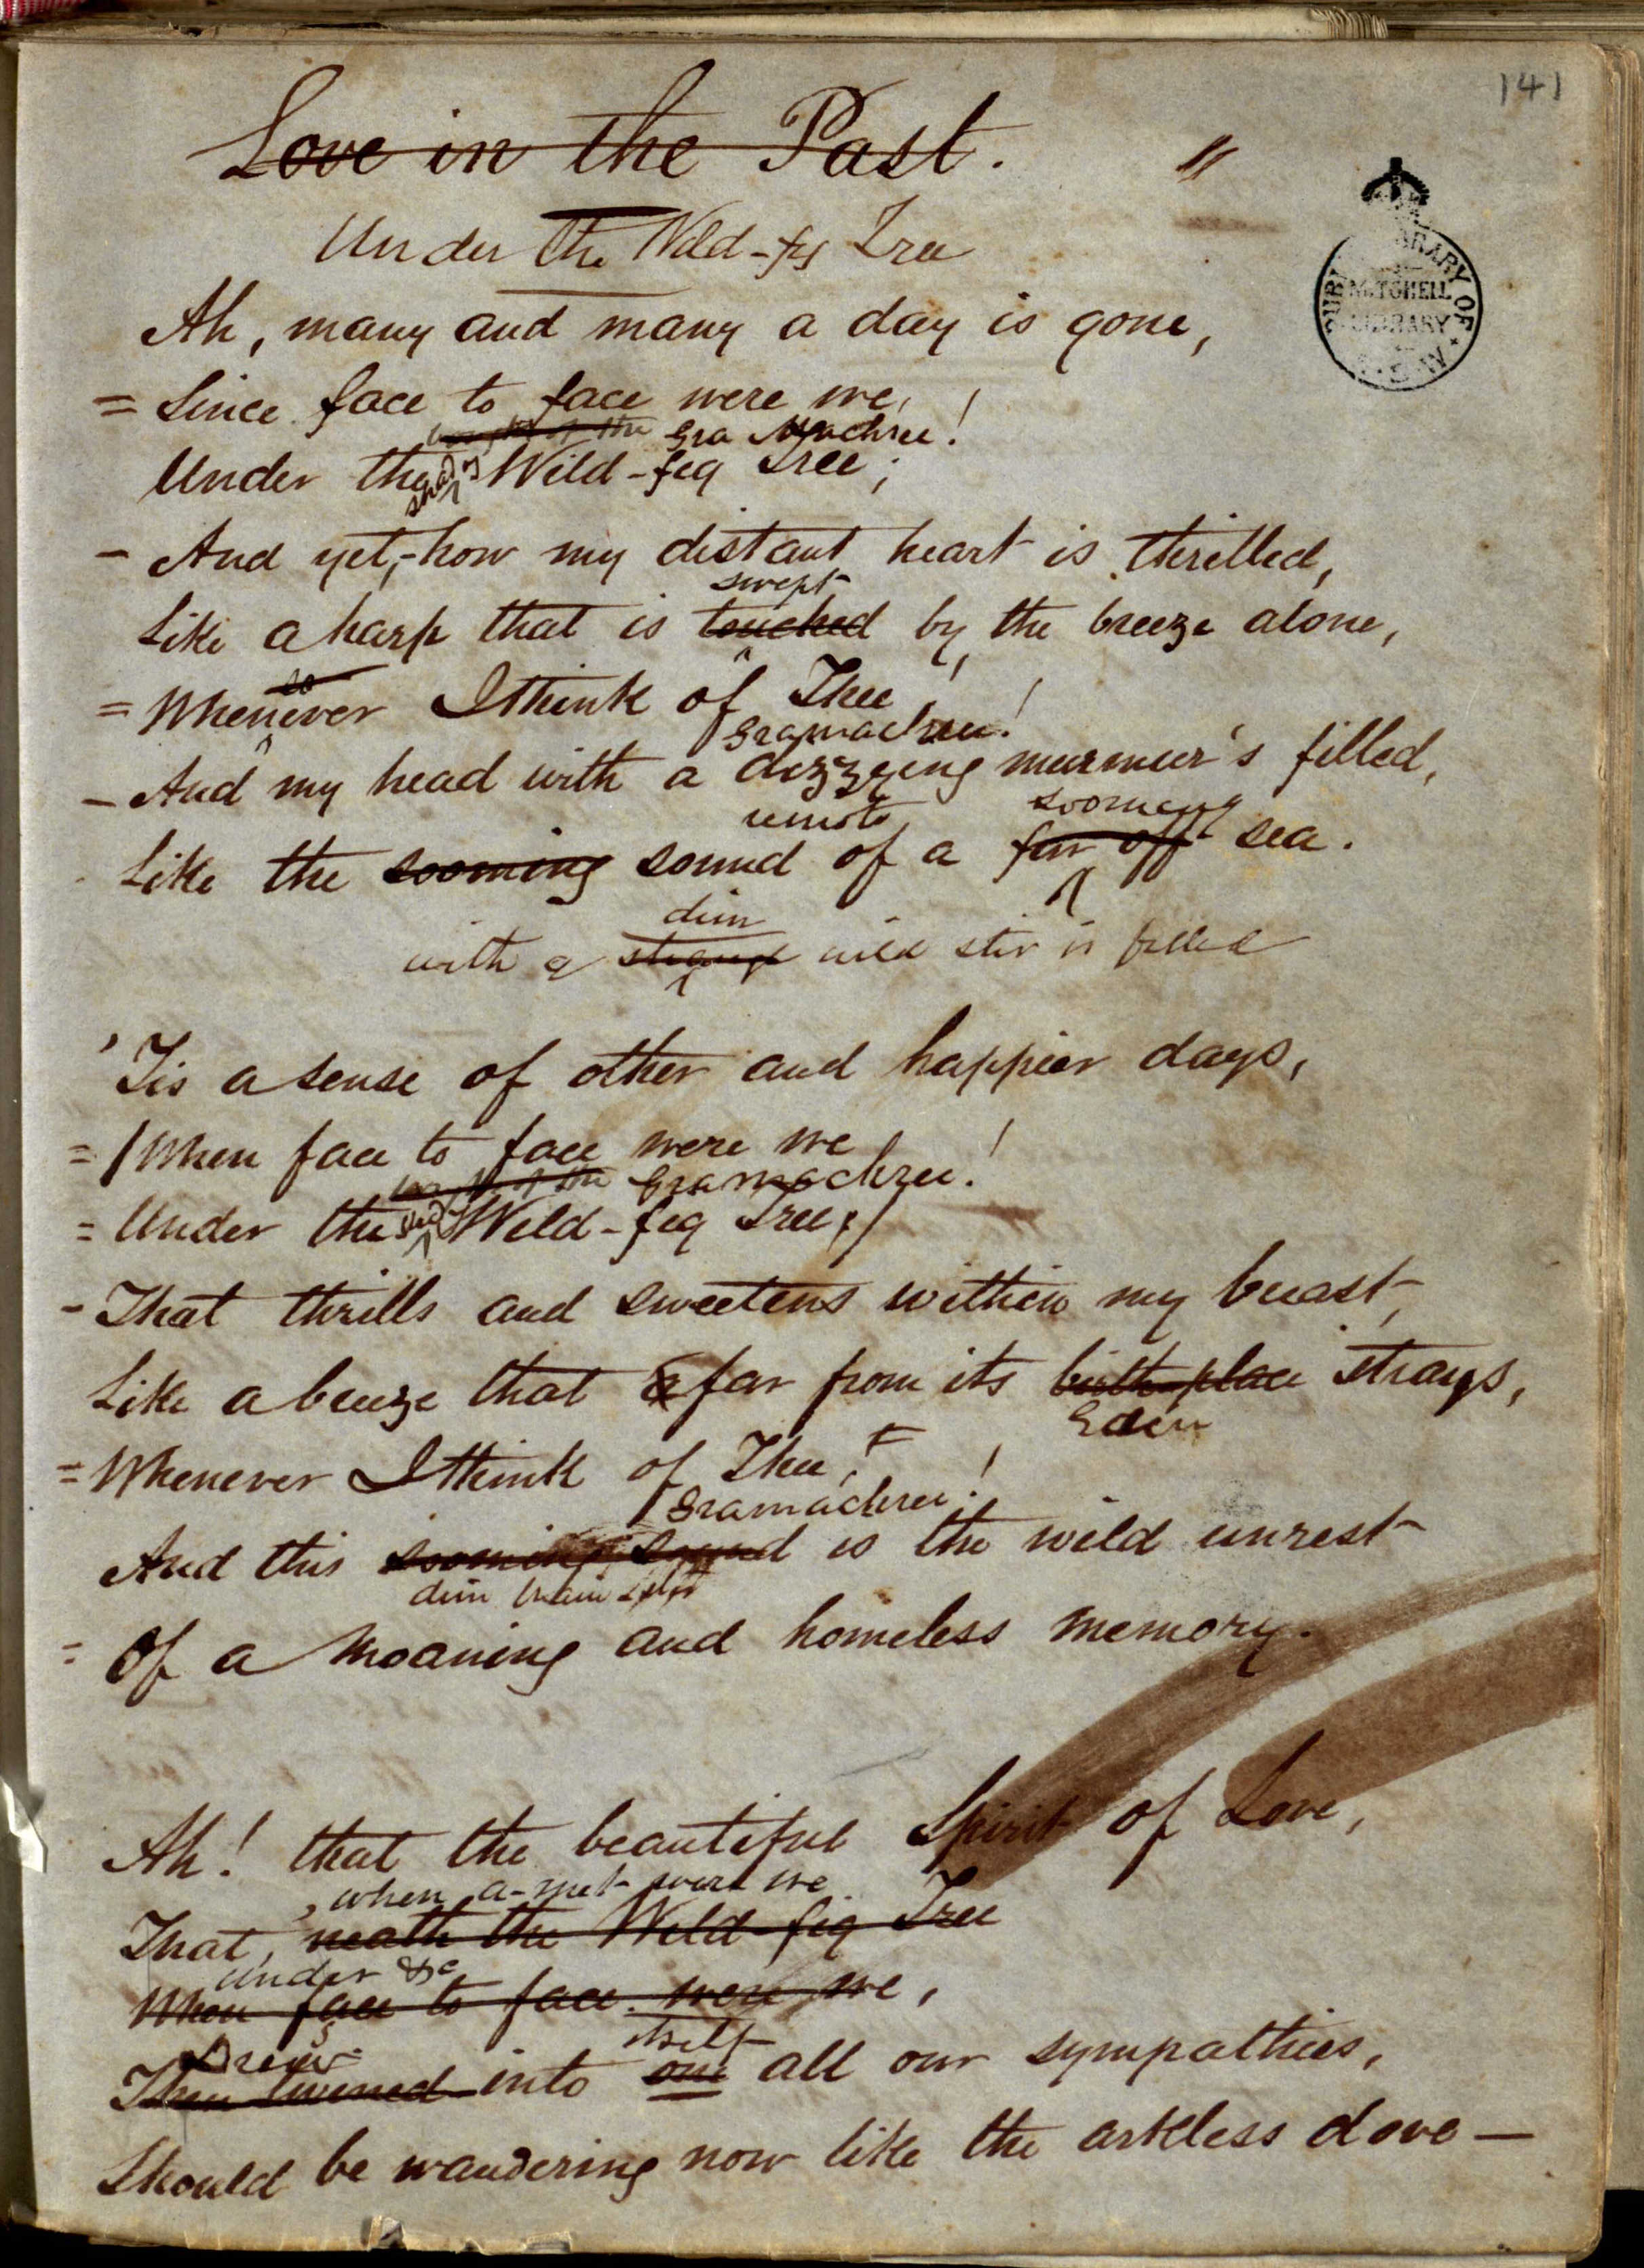 141
Love in the Past.
Under the Wild-fig Tree
PUBLIC LIBRARY OF N.S.W.
MITCHELL
LIBRARY
Ah, many and many a day is gone,
= Since face to face were we, !
of the Gra Machree!
Under the Wild-fig Tree;
shady
- And yet,-how my distant heart is thrilled,
swept
Like a harp that is touched by the breeze alone,
so
= Whenever I think of Thee !
Gramachree!
- And my head with a dizzying murmur's filled,
remote sooming
Like the sooming sound of a far off sea.
dim
with a strange wild stir is filled
'Tis a sense of other and happier days,
= When face to face were we !
of the Gramachree!
= Under the Wild-fig Tree;
- That thrills and sweetens within my breast,
Like a breeze that afar from its birth-place strays,
Eden
= Whenever I think of Thee, !
Gramachree!
And this sooming sound is the wild unrest
dim brain
= Of a moaning and homeless memory.
Ah! that the beautiful Spirit of Love,
, when a-met were we
That, neath the Wild-fig Tree
under &c
When face to face were we,
itself
Drew
Then twined into one all our sympathies,
Should be wandering now like the arkless dove—